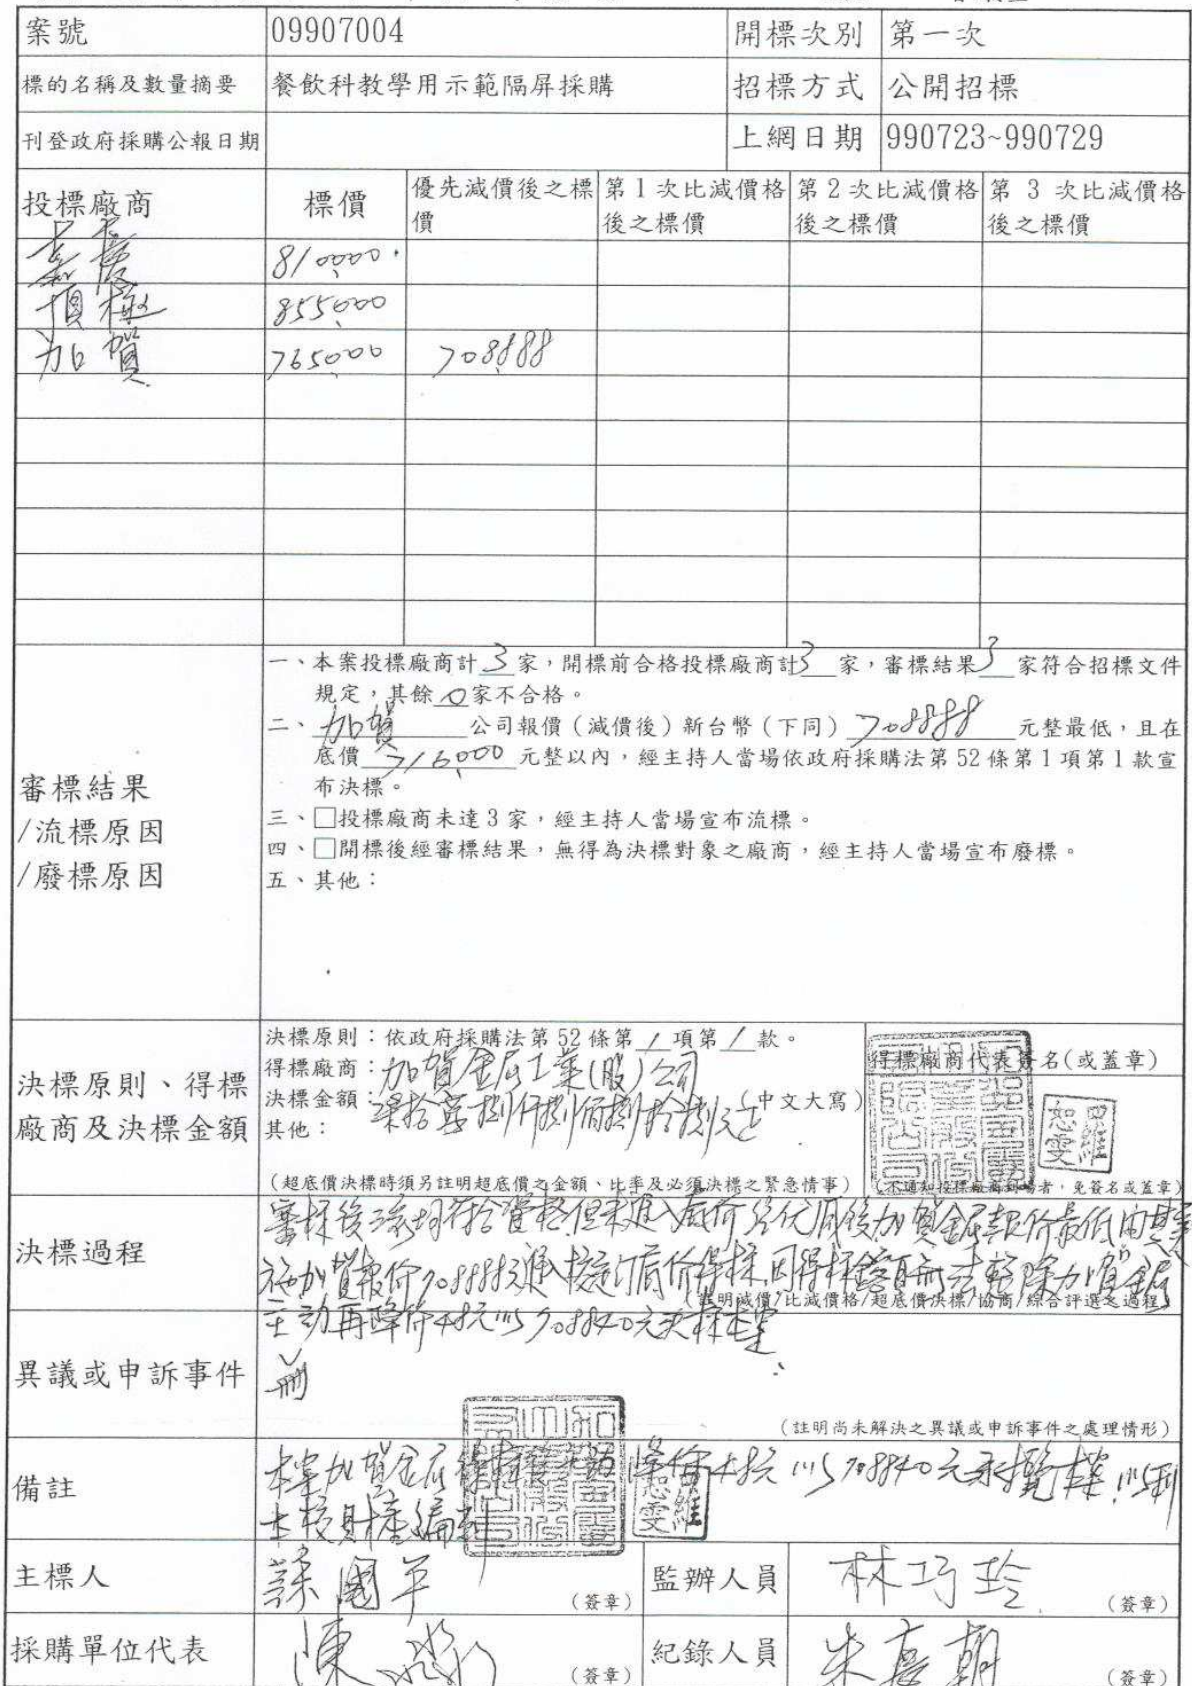 案號 09907004 開標次別 第一次
標的名稱及數量摘要 餐飲科教學用示範隔屏採購 招標方式 公開招標
刊登政府採購公報日期 上網日期 990723~990729
投標廠商 標價 優先減價後之標價 第1次比減價格後之標價 第2次比減價格後之標價 第 3 次比減價格後之標價
嘉慶 810,000
頂極 855,000
加賀 765,000 708,888
審標結果
/流標原因
/廢標原因
一、本案投標廠商計 3 家，開標前合格投標廠商計 3 家，審標結果 3 家符合招標文件
規定，其餘 0 家不合格。
二、加賀 公司報價（減價後）新台幣（下同）708888 元整最低，且在
底價 716,000 元整以內，經主持人當場依政府採購法第 52 條第 1 項第 1 款宣
布決標。
三、□投標廠商未達 3 家，經主持人當場宣布流標。
四、□開標後經審標結果，無得為決標對象之廠商，經主持人當場宣布廢標。
五、其他：
決標原則、得標
廠商及決標金額
決標原則：依政府採購法第 52 條第 1 項第 1 款。
得標廠商：加賀金屬工業(股)公司
決標金額：柒拾萬捌仟捌佰捌拾捌元正（中文大寫）
其他：
（超底價決標時須另註明超底價之金額、比率及必須決標之緊急情事）
得標廠商代表簽名(或蓋章)
羅恕雯
（不通知投標廠商到場者，免簽名或蓋章）
決標過程
審標後三家均符合資格但未進入底價經優減後加賀金屬報價最低
加賀報價708888元進入核定底價得標,因得標金額無法整除加賀金屬
（註明減價/比減價格/超底價決標/協商/綜合評選之過程）
主動再降價48元以708840元決標本案
異議或申訴事件 無
（註明尚未解決之異議或申訴事件之處理情形）
備註
本案加賀金屬 降價48元以708840元承攬本案,以利
本校財產編
羅恕雯
主標人 （簽章） 監辦人員 林巧玲 （簽章）
採購單位代表 陳 （簽章） 紀錄人員 朱 朝 （簽章）